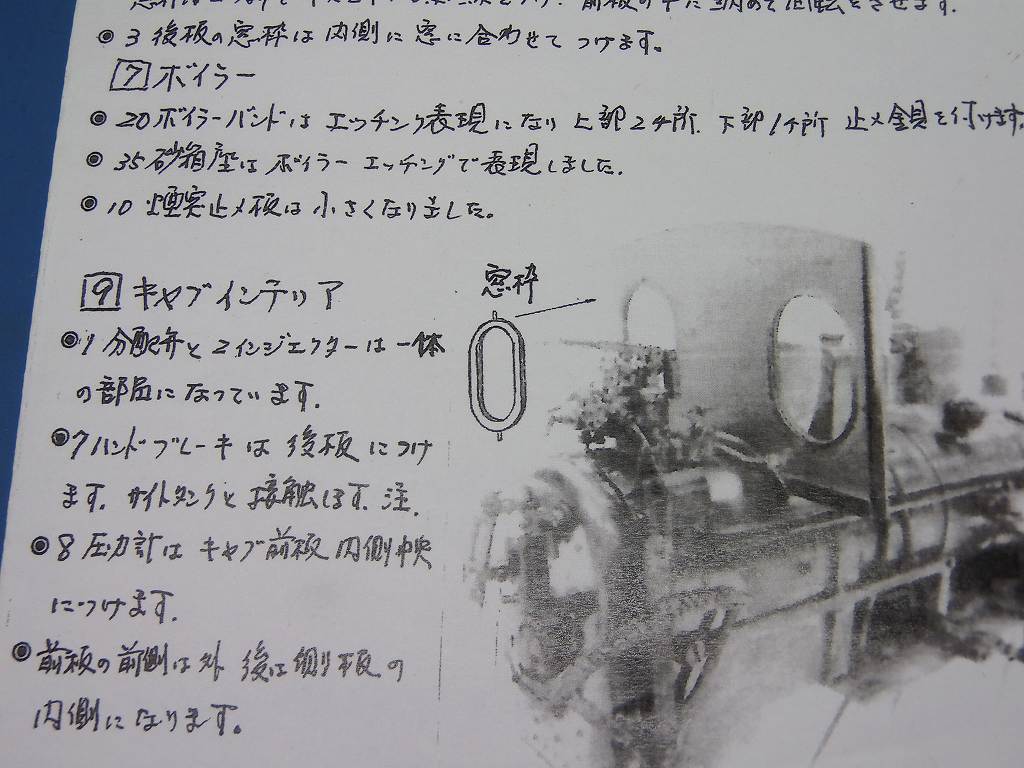 前板の中に
◉3 後板の窓枠は内側に窓に合わせてつけます。
7 ボイラー
◉20ボイラーバンドはエッチング表現になり上部2ヶ所、下部1ヶ所 止メ金具を付けます。
◉35砂箱座はボイラーエッチングで表現しました.
◉10 煙突止メ板は小さくなりました。
9 キャブインテリア
窓枠
◉1 分配弁と2インジェクターは一体
の部品になっています.
◉7ハンドブレーキは後板につけ
ます. サイトタンクと接触します.注.
◉8圧力計はキャブ前板内側中央
につけます.
◉前板の前側は外 後は側り板の
内側になります。